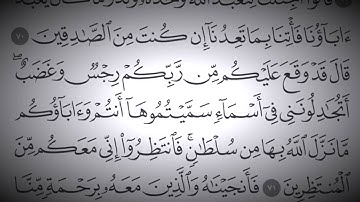 قَالُوٓا۟ أَجِئْتَنَا لِنَعْبُدَ ٱللَّهَ وَحْدَهُۥ وَنَذَرَ مَا كَانَ يَعْبُدُ
ءَابَآؤُنَا فَأْتِنَا بِمَا تَعِدُنَآ إِن كُنتَ مِنَ ٱلصَّـٰدِقِينَ ٧٠
قَالَ قَدْ وَقَعَ عَلَيْكُم مِّن رَّبِّكُمْ رِجْسٌ وَغَضَبٌ ۖ
أَتُجَـٰدِلُونَنِى فِىٓ أَسْمَآءٍ سَمَّيْتُمُوهَآ أَنتُمْ وَءَابَآؤُكُم
مَّا نَزَّلَ ٱللَّهُ بِهَا مِن سُلْطَـٰنٍ ۚ فَٱنتَظِرُوٓا۟ إِنِّى مَعَكُم مِّنَ
ٱلْمُنتَظِرِينَ ٧١ فَأَنجَيْنَـٰهُ وَٱلَّذِينَ مَعَهُۥ بِرَحْمَةٍ مِّنَّا